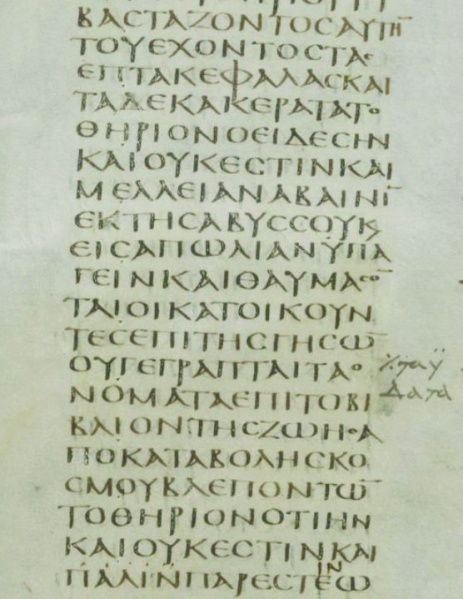 ΒΑϹΤΑΖΟΝΤΟϹΑΥΤΗ̅
ΤΟΥΕΧΟΝΤΟϹΤΑϹ
ΕΠΤΑΚΕΦΑΛΑϹΚΑΙ
ΤΑΔΕΚΑΚΕΡΑΤΑΤΟ
ΘΗΡΙΟΝΟΕΙΔΕϹΗΝ
ΚΑΙΟΥΚΕϹΤΙΝΚΑΙ
ΜΕΛΛΕΙΑΝΑΒΑΙΝΙ̅
ΕΚΤΗϹΑΒΥϹϹΟΥΚ
ΕΙϹΑΠΩΛΙΑΝΥΠΑ
ΓΕΙΝΚΑΙΘΑΥΜΑϹΟ̅
ΤΑΙΟΙΚΑΤΟΙΚΟΥΝ
ΤΕϹΕΠΙΤΗϹΓΗϹΩ̅
ΟΥΓΕΓΡΑΠΤΑΙΤΑΟ
ΝΟΜΑΤΑΕΠΙΤΟΒΙ
ΒΛΙΟΝΤΗϹΖΩΗϹΑ
ΠΟΚΑΤΑΒΟΛΗϹΚΟ
ϹΜΟΥΒΛΕΠΟΝΤΩ̅
ΤΟΘΗΡΙΟΝΟΤΙΗΝ
ΚΑΙΟΥΚΕϹΤΙΝΚΑΙ
ΠΑΛΙΝΠΑΡΕϹΤΕΩ̅